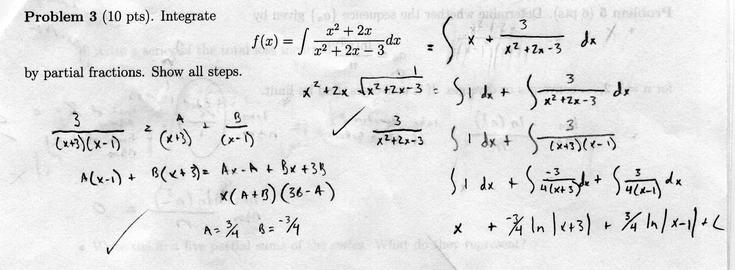 Problem 3 (10 pts). Integrate
f(x) = ∫ x² + 2x / x² + 2x − 3 dx = ∫ x + 3 / x² + 2x - 3 dx
by partial fractions. Show all steps.
x² + 2x √x² + 2x - 3 1 = ∫ 1 dx + ∫ 3 / x² + 2x - 3 dx
3 / (x+3)(x-1) = A / (x+3) + B / (x-1)
✓ 3 / x² + 2x - 3 ∫ 1 dx + ∫ 3 / (x+3)(x-1)
A(x-1) + B(x+3) = Ax - A + Bx + 3B
∫ 1 dx + ∫ -3 / 4(x+3) dx + ∫ 3 / 4(x-1) dx
x(A+B)(3B-A)
✓ A = 3/4 B = -3/4
x + -3/4 ln |x+3| + 3/4 ln |x-1| + C